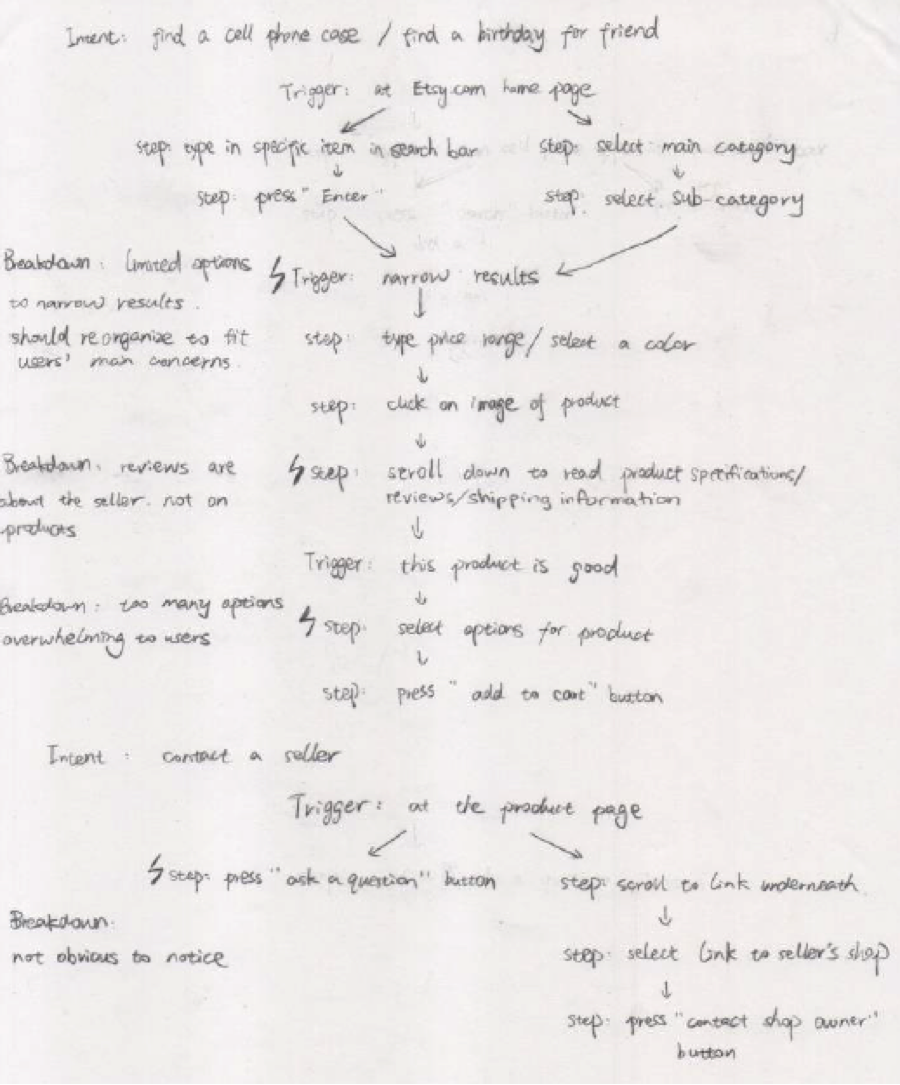 Intent: find a cell phone case / find a birthday for friend
Trigger: at Etsy.com home page
step: type in specific item in search bar
step: select main category
step: press "Enter"
step: select sub-category
Breakdown: limited options
to narrow results.
should reorganize to fit
users' main concerns.
Trigger: narrow results
step: type price range / select a color
step: click on image of product
Breakdown: reviews are
about the seller. not on
products
step: scroll down to read product specifications/
reviews/shipping information
Trigger: this product is good
Breakdown: too many options
overwhelming to users
step: select options for product
step: press "add to cart" button
Intent: contact a seller
Trigger: at the product page
step: press "ask a question" button
step: scroll to link underneath
Breakdown:
not obvious to notice
step: select link to seller's shop
step: press "contact shop owner"
button